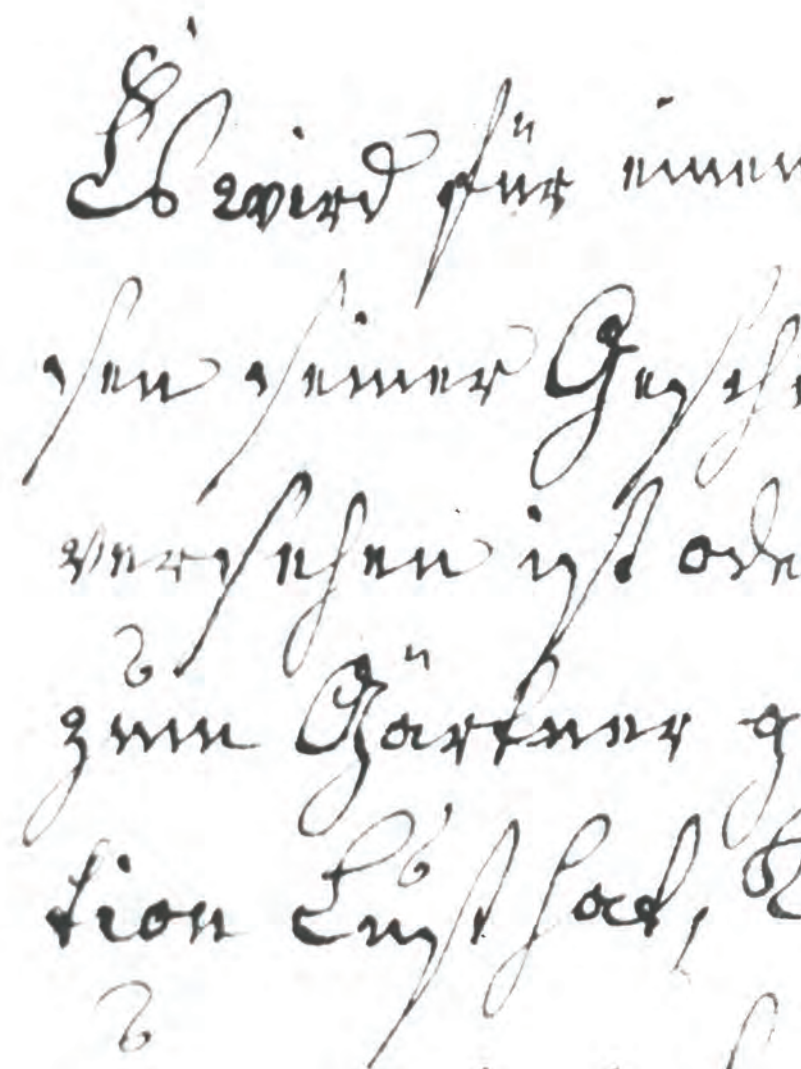 Es wird für einen
sen seiner Gesch
versehen ist ode
zum Gärtner g
tion Lust hat,